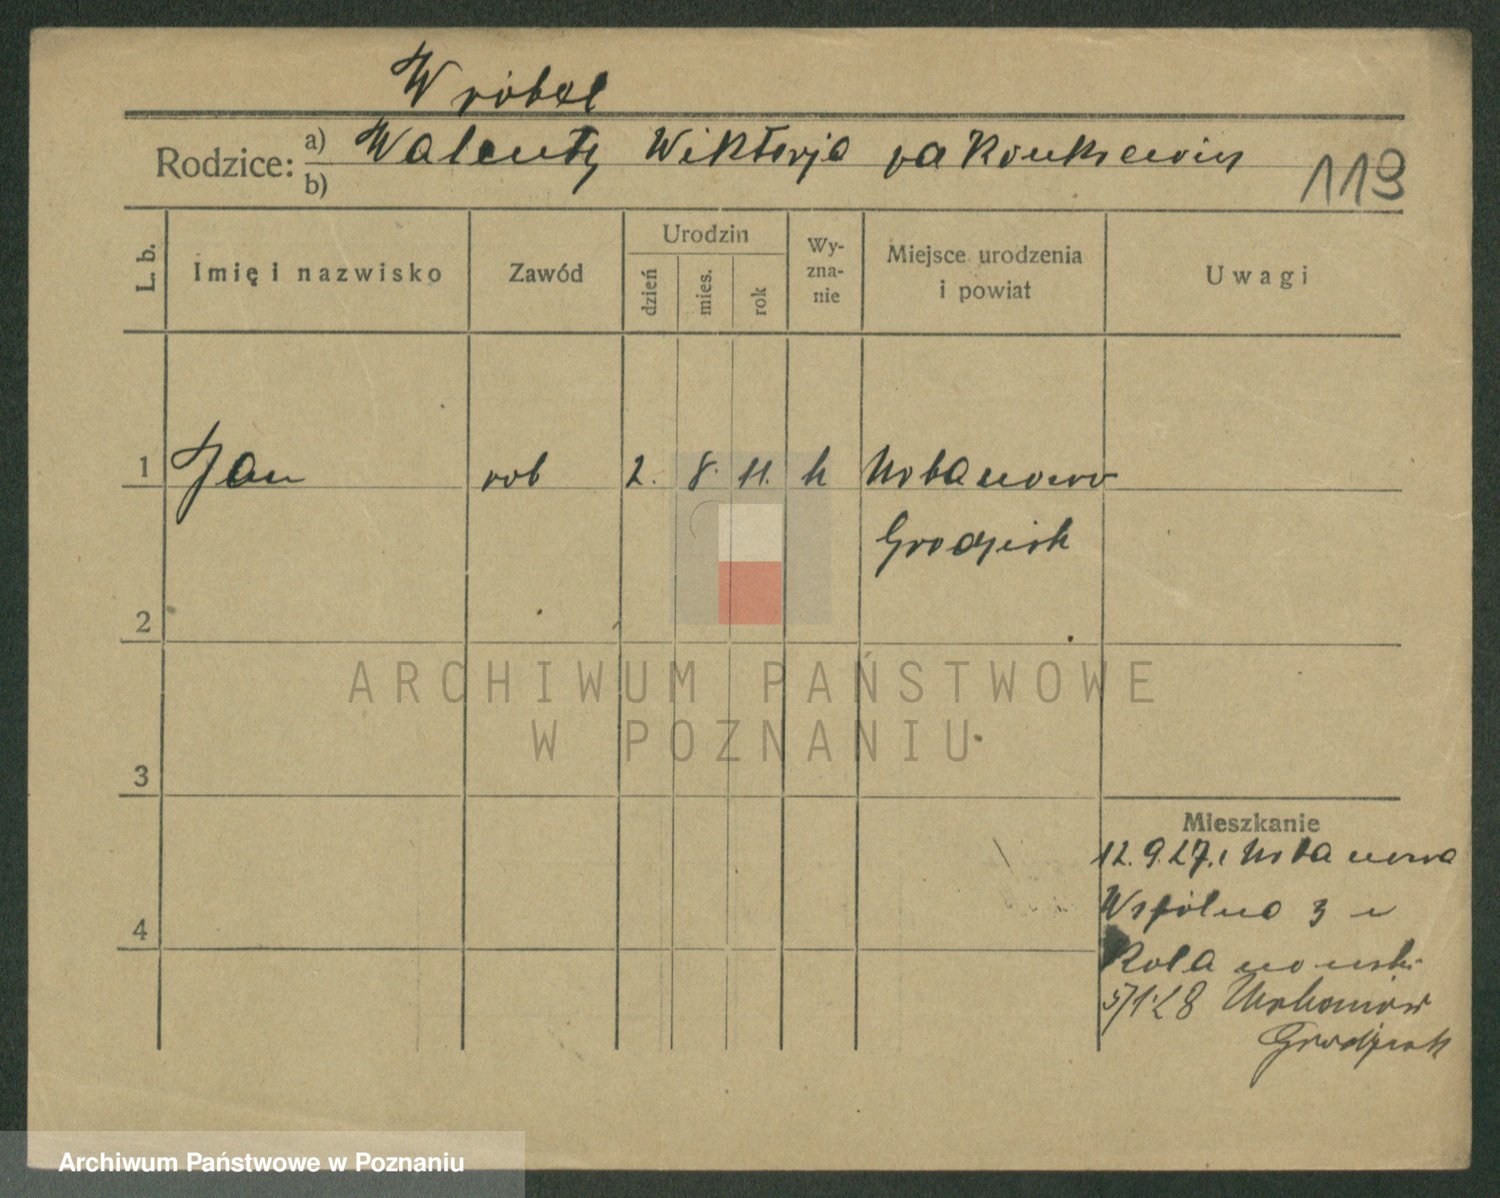 Wróbel
Rodzice: a) Walenty Wiktorja
b)
119
L. b. Imię i nazwisko Zawód Urodzin dzień mies. rok Wyznanie Miejsce urodzenia i powiat Uwagi
1 Jan rob 2. 8. 11. k
Grodzisk
2
3
4
Mieszkanie
12.9.27.
Wspólna 3 u
5/1.28
Grodzisk
ARCHIWUM PAŃSTWOWE
W POZNANIU
Archiwum Państwowe w Poznaniu